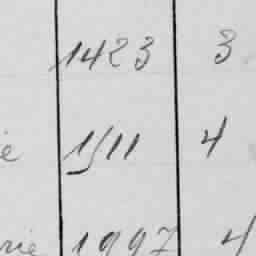 1423 3
e 1511 4
rie 1997 4